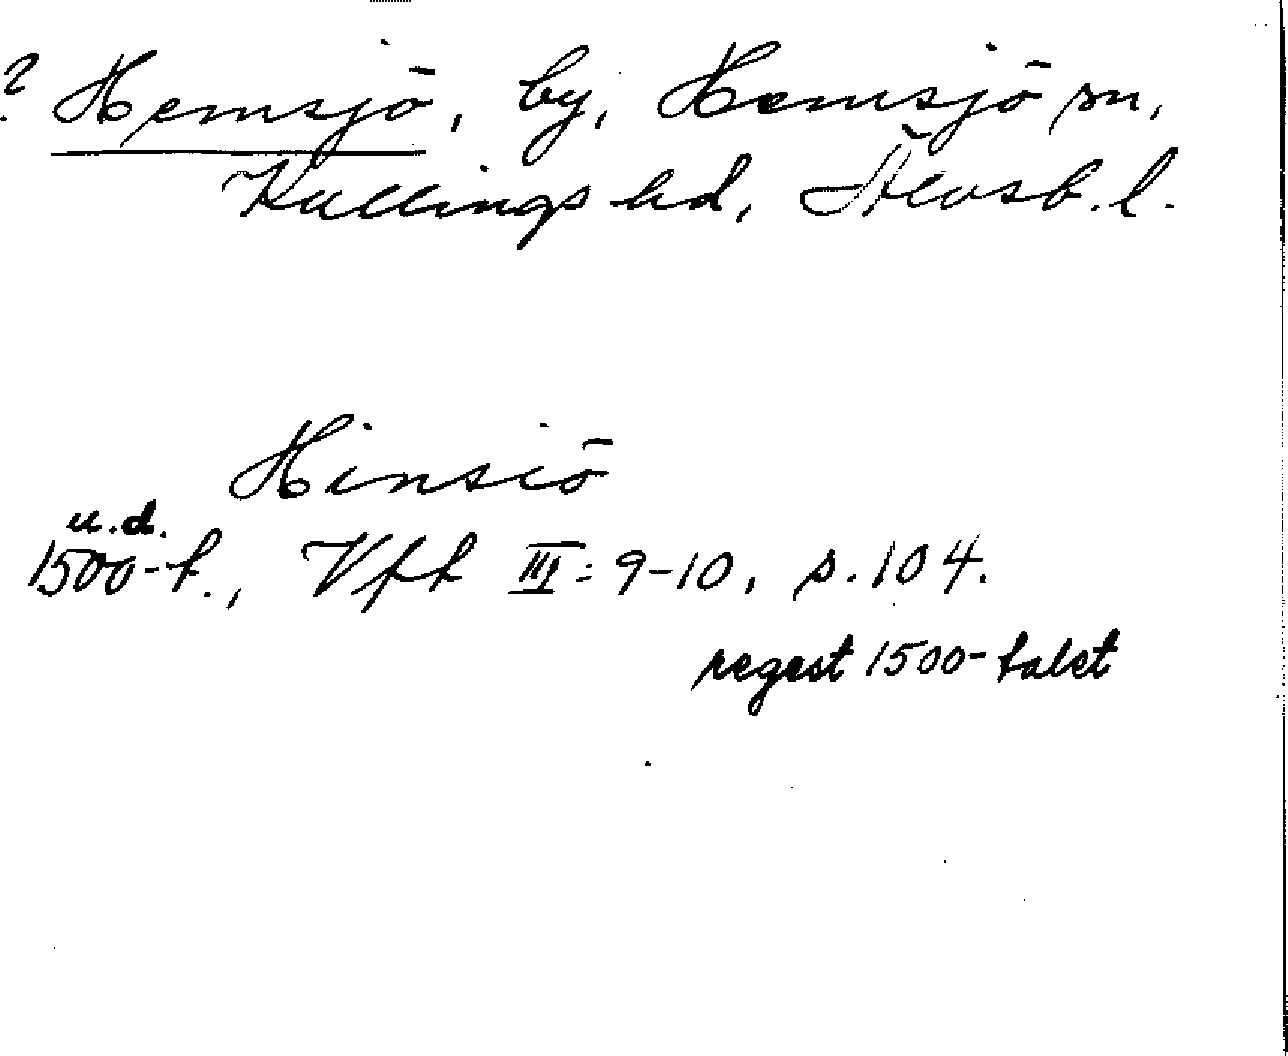 ? Hemsjö, by, Hemsjö sn,
Kullings hd, Älvsb. l.
Hinsiö
u.d.
1500-t., Vfk III: 9-10, s. 104.
regest 1500-talet